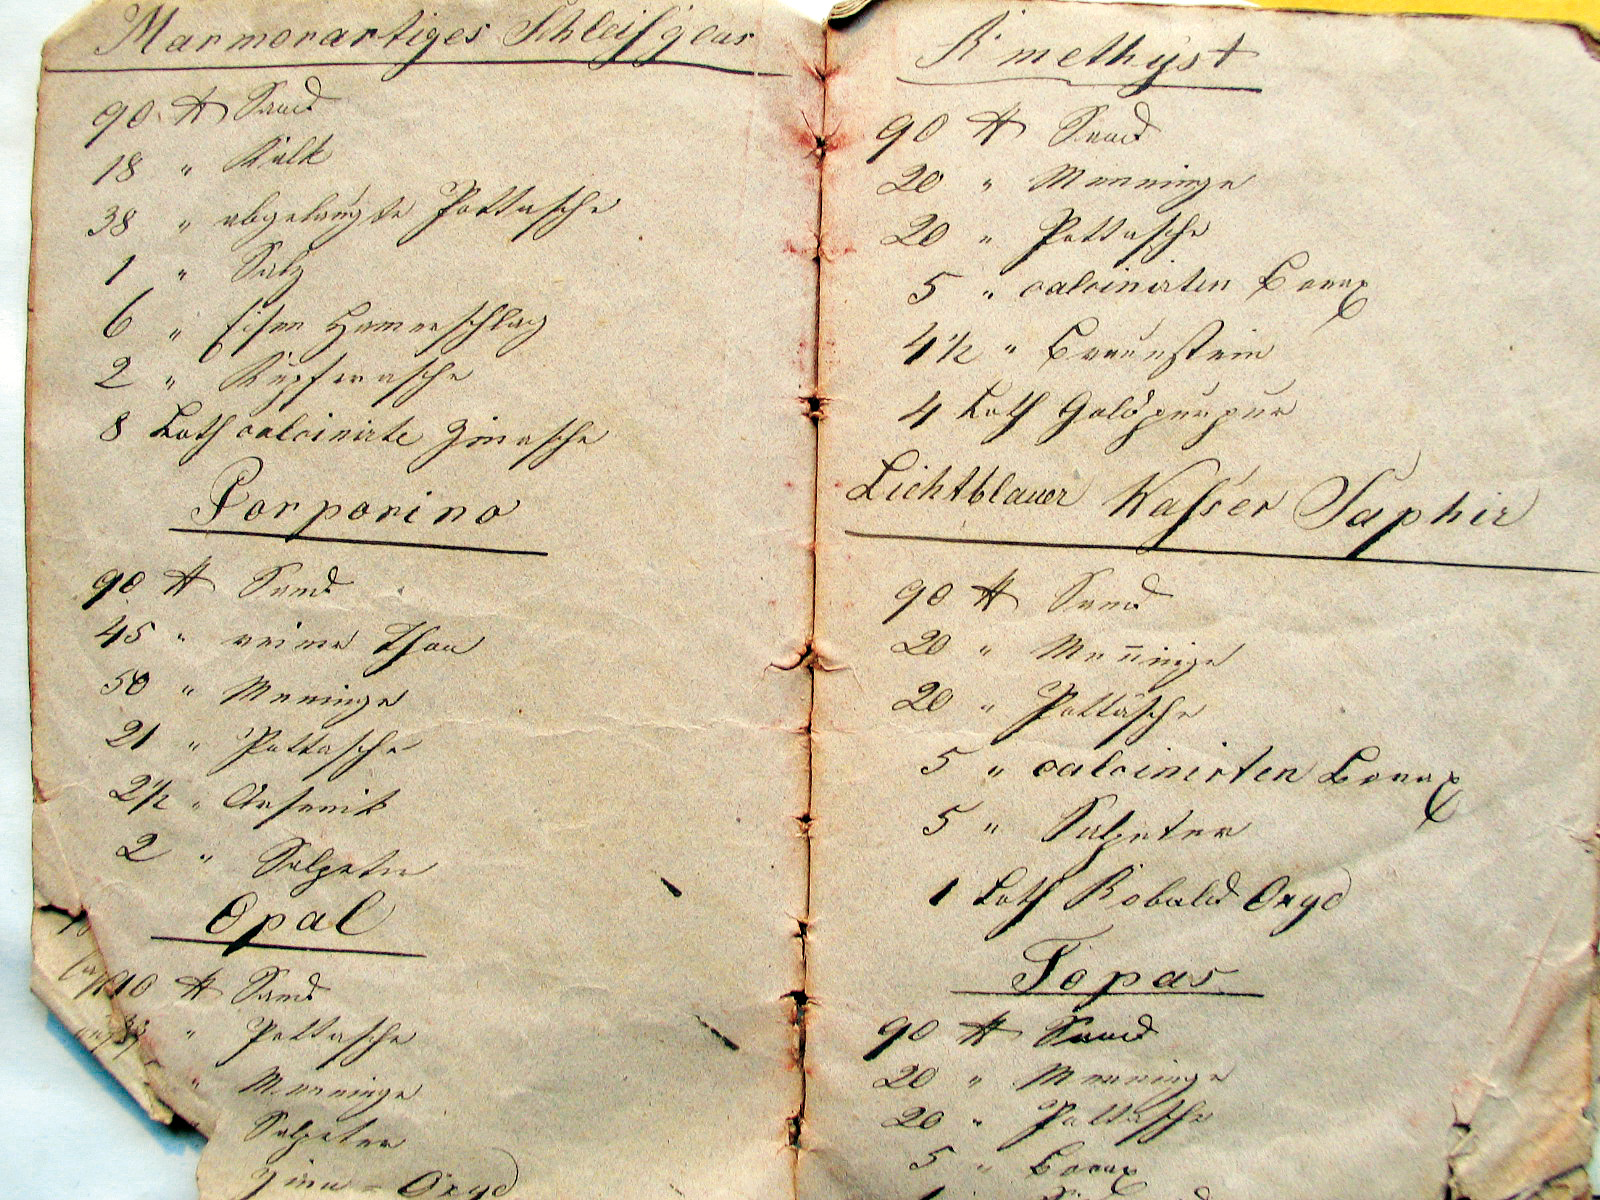 Marmorartiges Schleifglas
90 ℔ Sand
18 " Kalk
38 " abgelaugte Pottasche
1 " Salz
6 " Eisen Hamerschlag
2 " Kupferasche
8 Loth calcinirte Zinasche
Porporino
90 ℔ Sand
45 " reiner Thon
50 " Meninge
21 " Pottasche
2½ " Arsenik
2 " Salpeter
Opal
90 ℔ Sand
" Pottasche
" Menninge
Salpeter
Zinn = Oxyd
Amethyst
90 ℔ Sand
20 " Menninge
20 " Pottasche
5 " calcinirten Borax
4½ " Braunstein
4 Loth Goldpurpur
Lichtblauer Wasser Saphir
90 ℔ Sand
20 " Men̄inge
20 " Pottasche
5 " calcinirten Borax
5 " Salpeter
1 Loth Kobald Oxyd
Topas
90 ℔ Sand
20 " Menninge
20 " Pottasche
5 " Borax